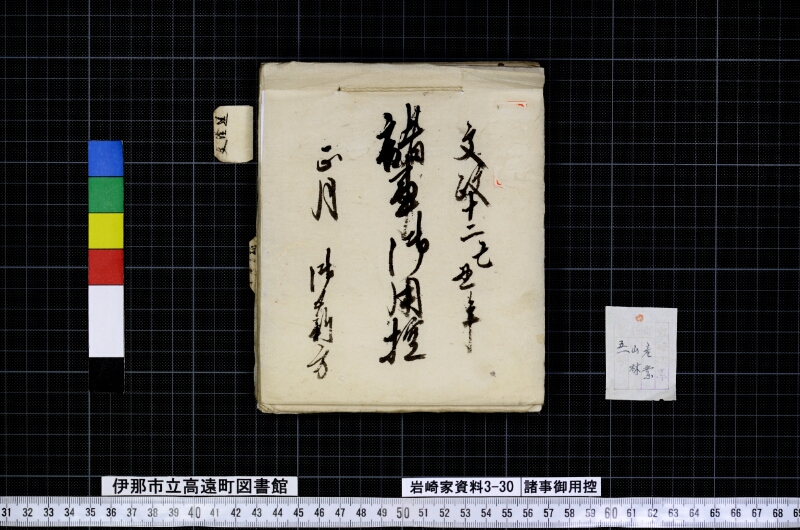 文政十二己丑年
諸事御用控
正月 御剏方
五山産
林業
伊那市立高遠町図書館
岩崎家資料3-30 諸事御用控
31 32 33 34 35 36 37 38 39 40 41 42 43 44 45 46 47 48 49 50 51 52 53 54 55 56 57 58 59 60 61 62 63 64 65 66 67 68 69